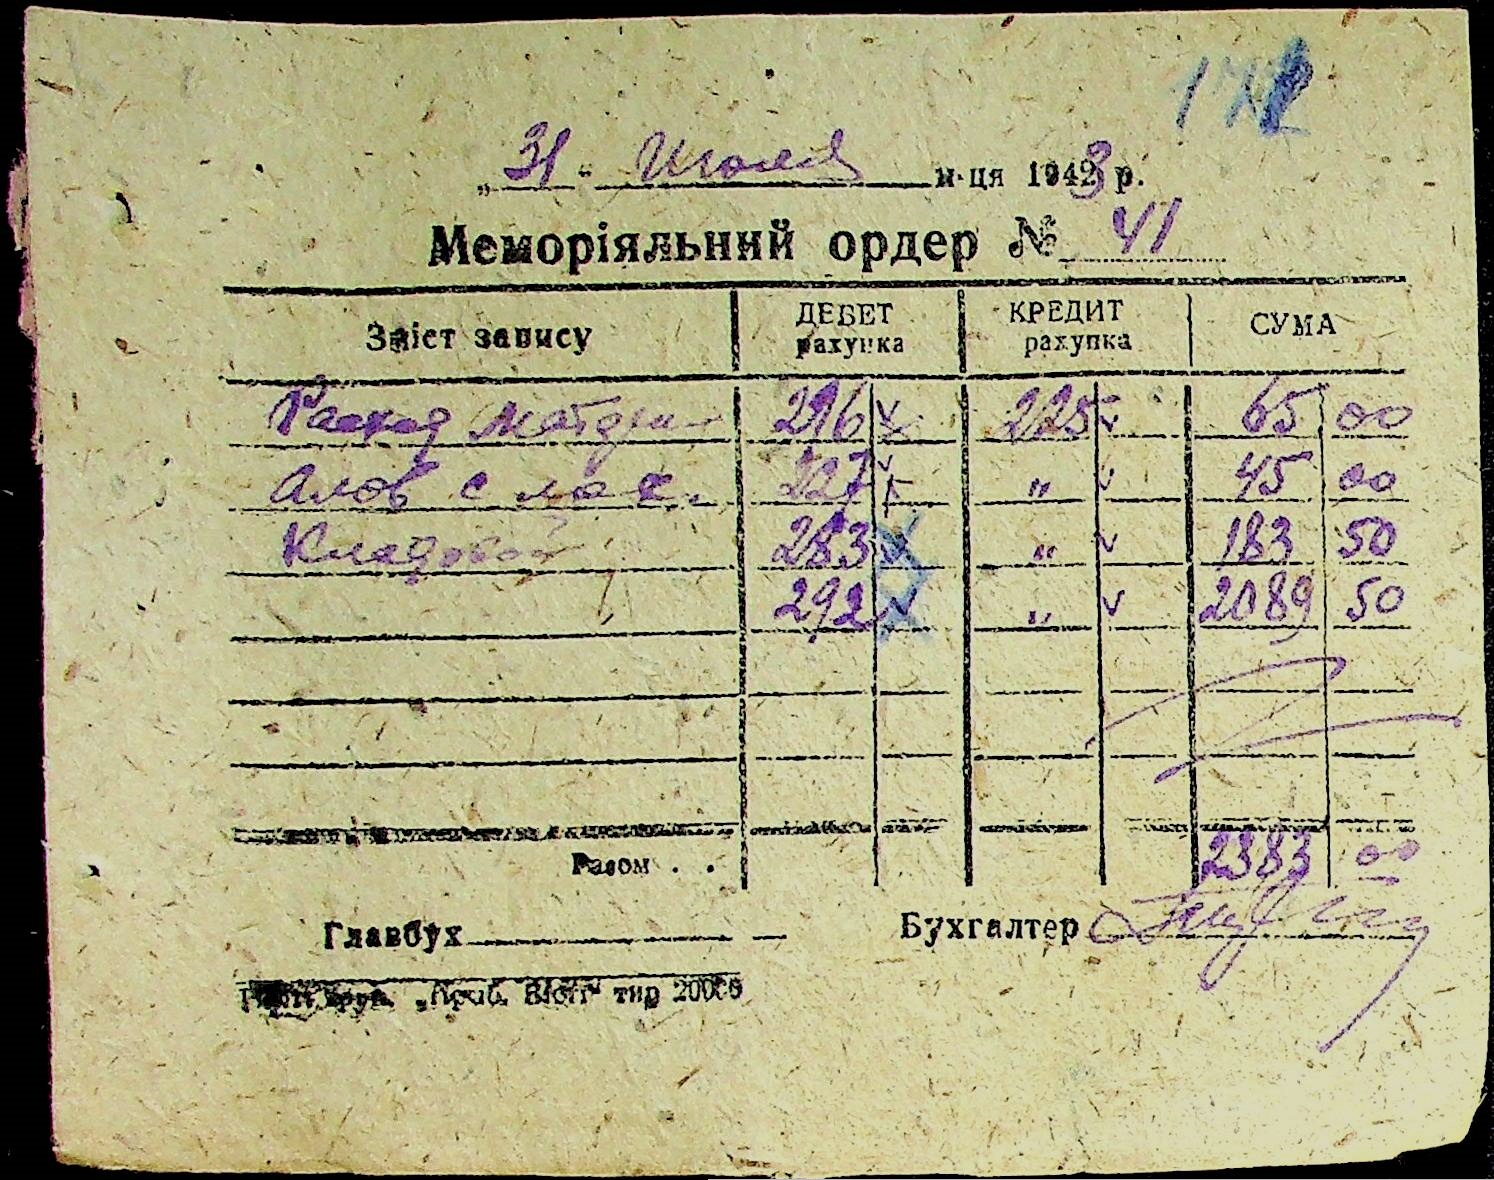 „31“ Июля м-ця 1943 р.
Меморіяльний ордер № 41
Зміст запису ДЕБЕТ рахунка КРЕДИТ рахунка СУМА
Расход 296 225 65 00
с 227 " 45 00
Кладовой 283 " 183 50
292 " 2089 50
Разом . . 2383 00
Главбух Бухгалтер
тир 20000